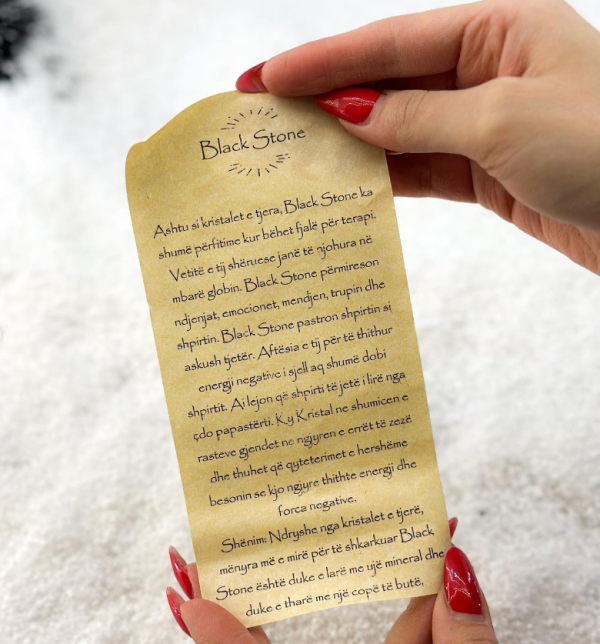 Black Stone
Ashtu si kristalet e tjera, Black Stone ka
shumë përfitime kur bëhet fjalë për terapi.
Vetitë e tij shëruese janë të njohura në
mbarë globin. Black Stone përmireson
ndjenjat, emocionet, mendjen, trupin dhe
shpirtin. Black Stone pastron shpirtin si
askush tjetër. Aftësia e tij për të thithur
energji negative i sjell aq shumë dobi
shpirtit. Ai lejon që shpirti të jetë i lirë nga
çdo papastërti. Ky Kristal ne shumicen e
rasteve gjendet ne ngjyren e errët të zezë
dhe thuhet që qyteterimet e hershëme
besonin se kjo ngjyre thithte energji dhe
forca negative.
Shënim: Ndryshe nga kristalet e tjerë,
mënyra më e mirë për të shkarkuar Black
Stone është duke e larë me ujë mineral dhe
duke e tharë me një copë të butë.